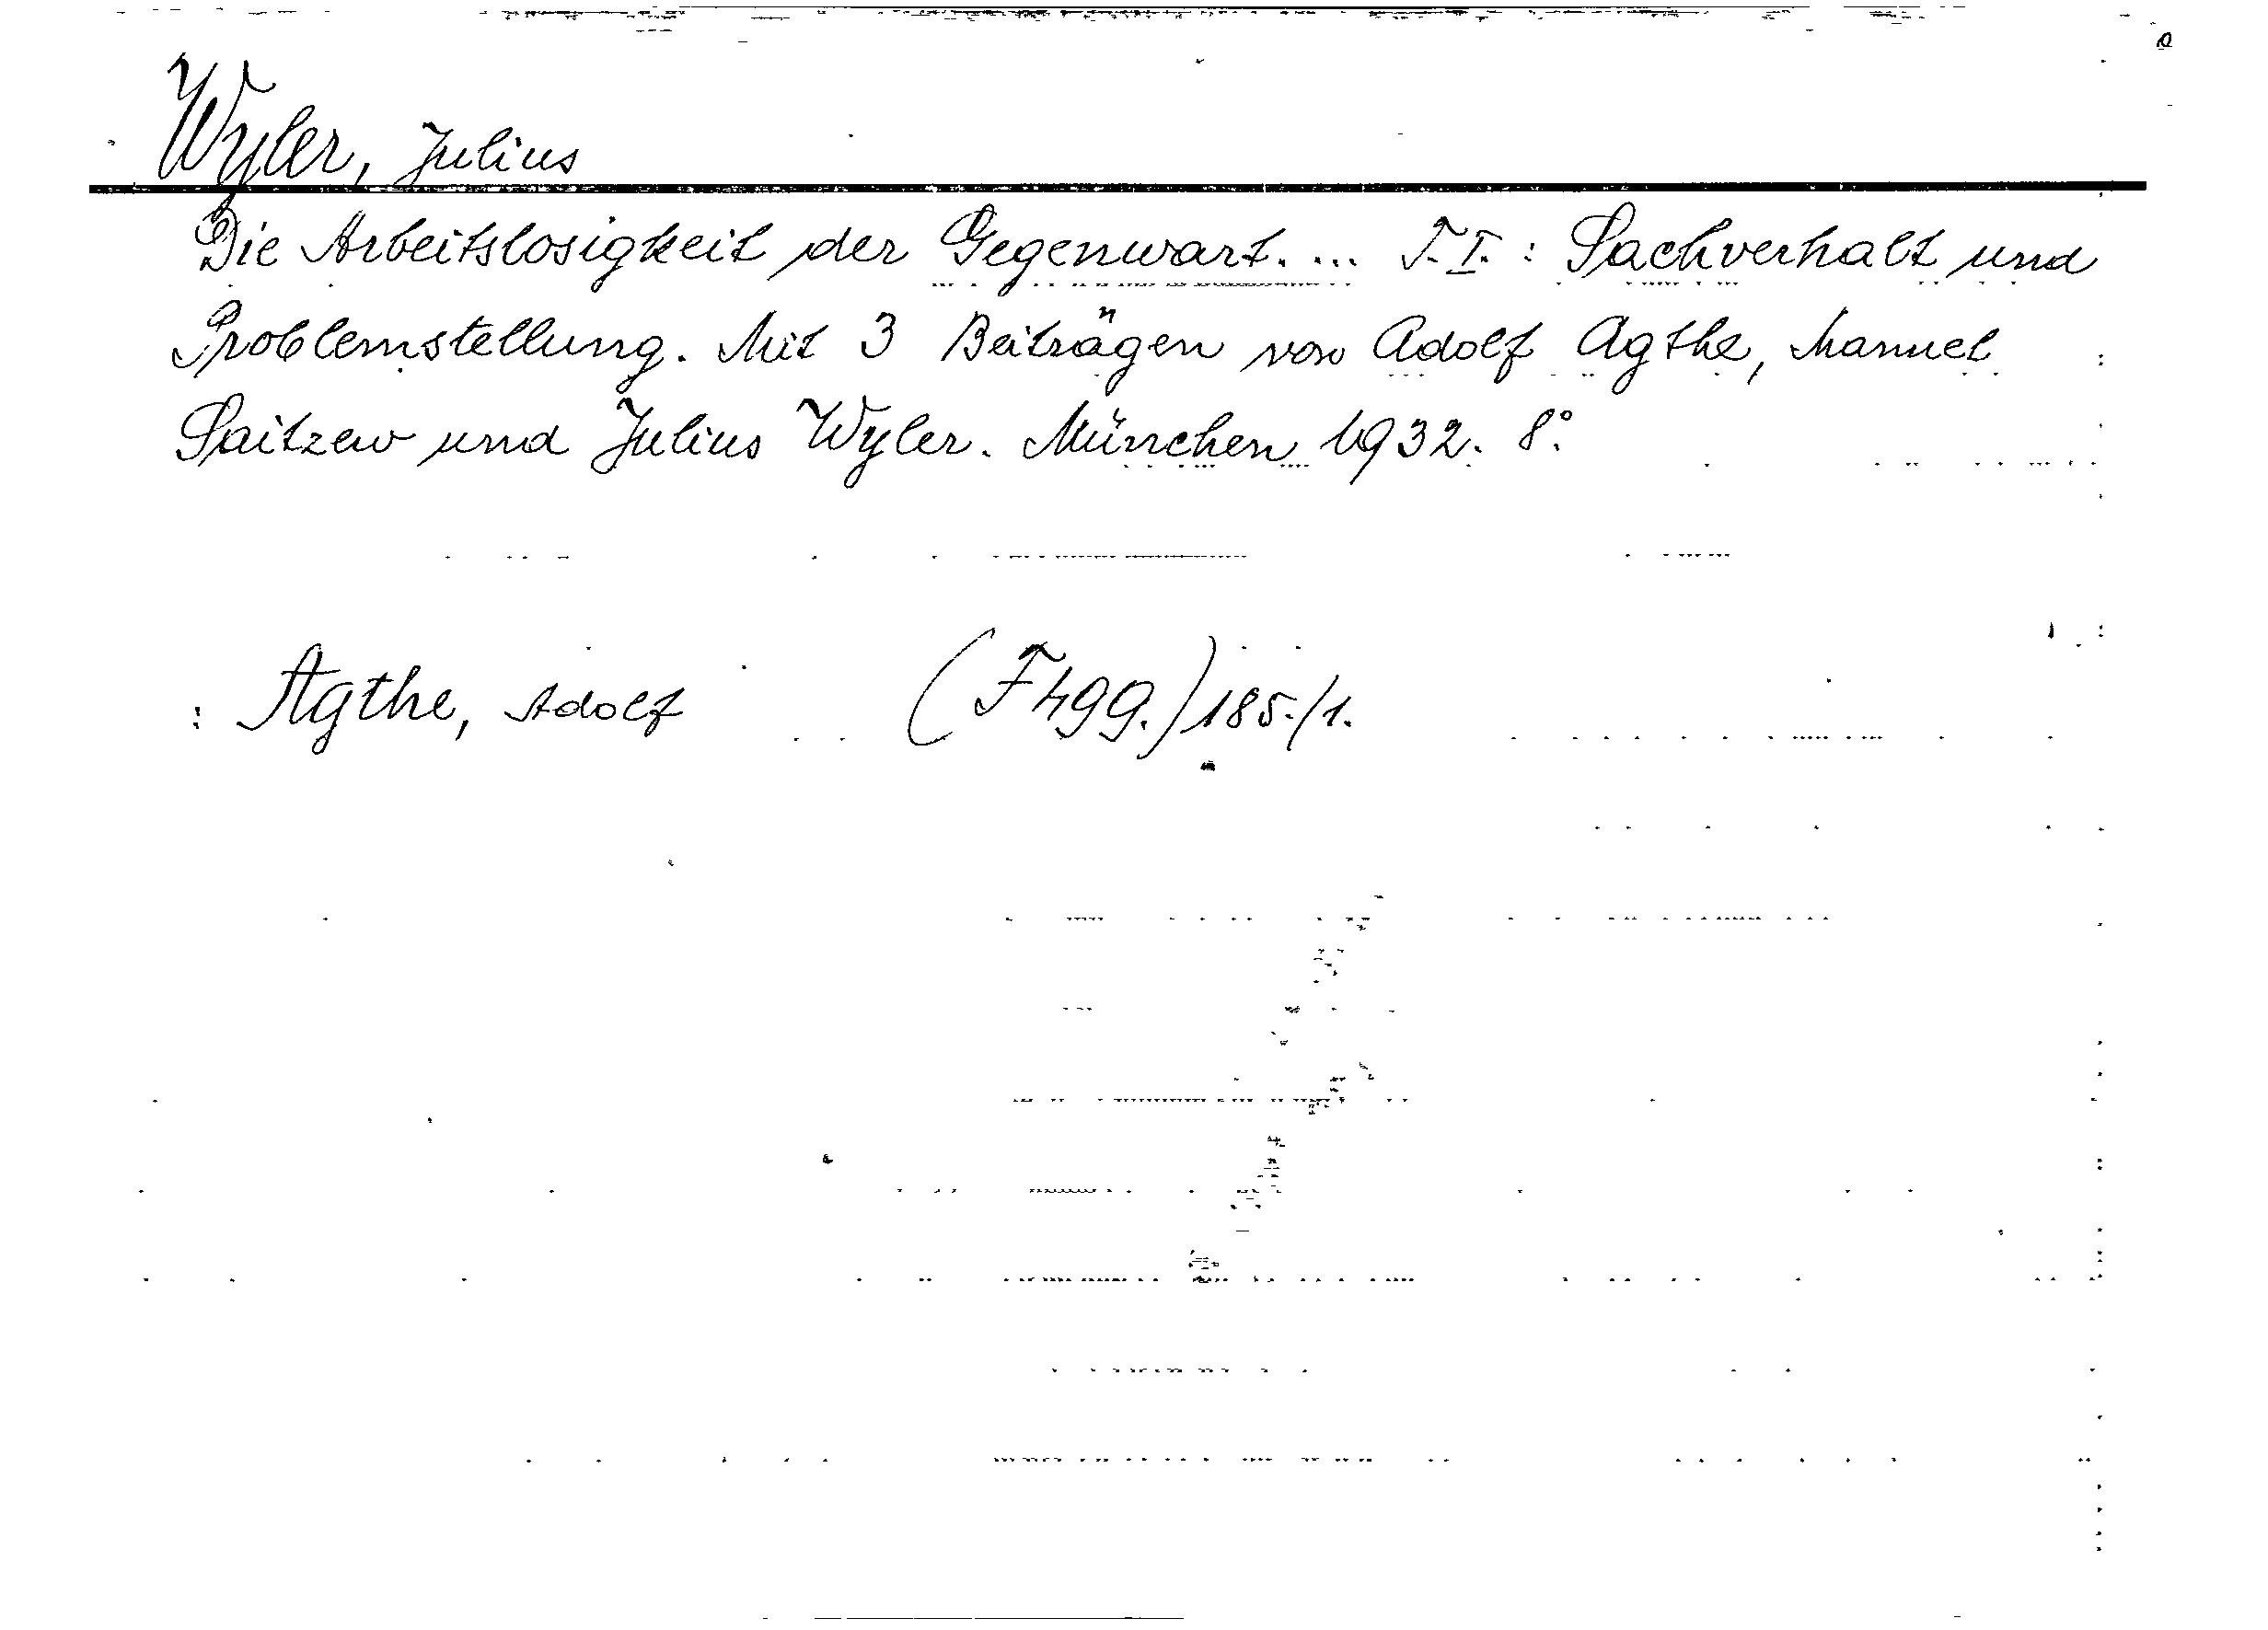 Wyler, Julius
Die Arbeitslosigkeit der Gegenwart. ... T.I.: Sachverhalt und
Problemstellung. Mit 3 Beiträgen von Adolf Agthe, Manuel
Saitzew und Julius Wyler. München 1932. 8°.
: Agthe, Adolf (Fhgg.) 185./1.